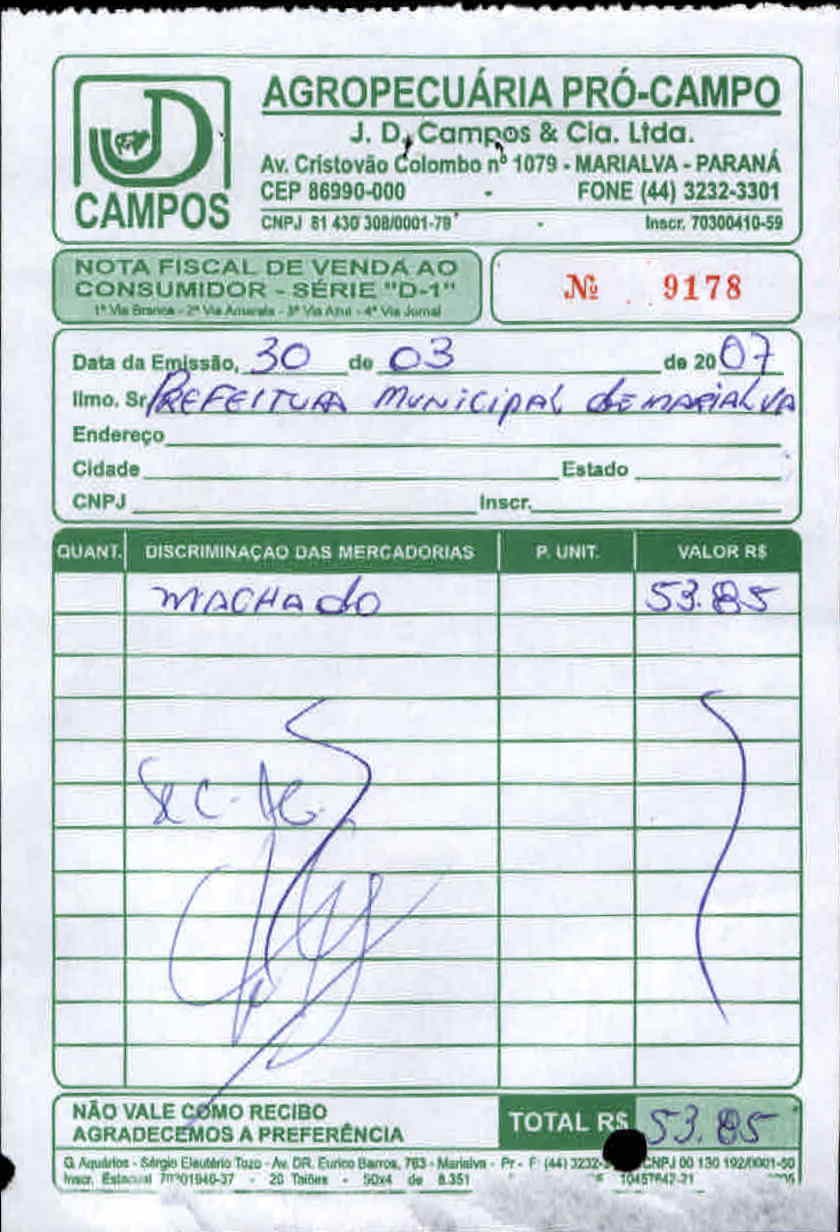 JD
CAMPOS
AGROPECUÁRIA PRÓ-CAMPO
J. D. Campos & Cia. Ltda.
Av. Cristovão Colombo nº 1079 - MARIALVA - PARANÁ
CEP 86990-000 - FONE (44) 3232-3301
CNPJ 81 430 308/0001-78 - Inscr. 70300410-59
NOTA FISCAL DE VENDA AO
CONSUMIDOR - SÉRIE "D-1"
1ª Via Branca - 2ª Via Amarela - 3ª Via Azul - 4ª Via Jornal
Nº 9178
Data da Emissão, 30 de 03 de 2007
Ilmo. Sr. PREFEITURA MUNICIPAL DE MARIALVA
Endereço
Cidade Estado
CNPJ Inscr.
QUANT. DISCRIMINAÇÃO DAS MERCADORIAS P. UNIT. VALOR R$
MACHADO 53.85
NÃO VALE COMO RECIBO
AGRADECEMOS A PREFERÊNCIA
TOTAL R$ 53.85
G. Aquários - Sérgio Eleutério Tozo - Av. DR. Eurico Barros, 763 - Marialva - Pr - F: (44) 3232- CNPJ 00 130 192/0001-50
Inscr. Estadual 70301946-37 - 20 Talões - 50x4 de 8.351